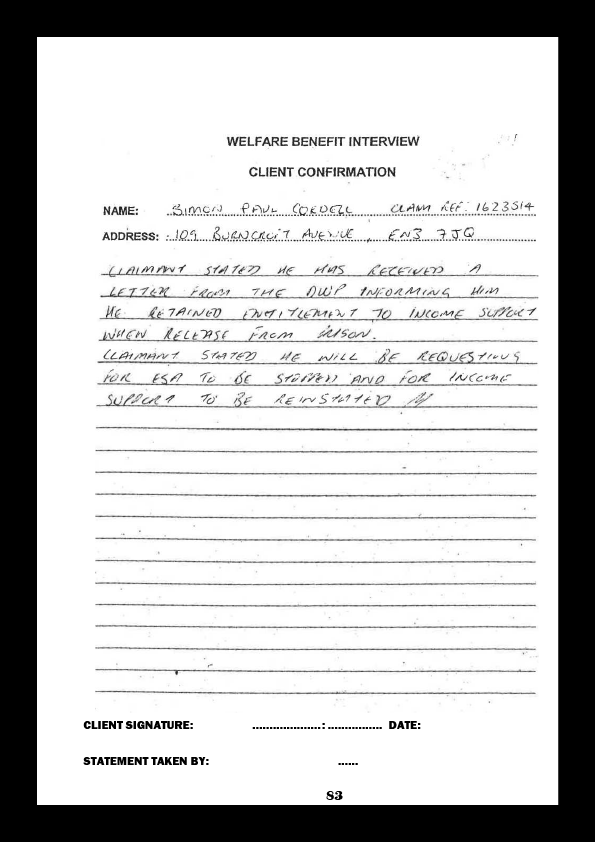 WELFARE BENEFIT INTERVIEW
CLIENT CONFIRMATION
NAME: SIMON PAUL CORDELL CLAIM REF: 1623514
ADDRESS: 109 BURNCROFT AVENUE, EN3 7JQ
CLAIMANT STATED HE HAS RECEIVED A
LETTER FROM THE DWP INFORMING HIM
HE RETAINED ENTITLEMENT TO INCOME SUPPORT
WHEN RELEASE FROM PRISON.
CLAIMANT STATED HE WILL BE REQUESTING
FOR ESA TO BE STOPPED AND FOR INCOME
SUPPORT TO BE REINSTATED
CLIENT SIGNATURE: .....................: ................ DATE:
STATEMENT TAKEN BY: ......
83